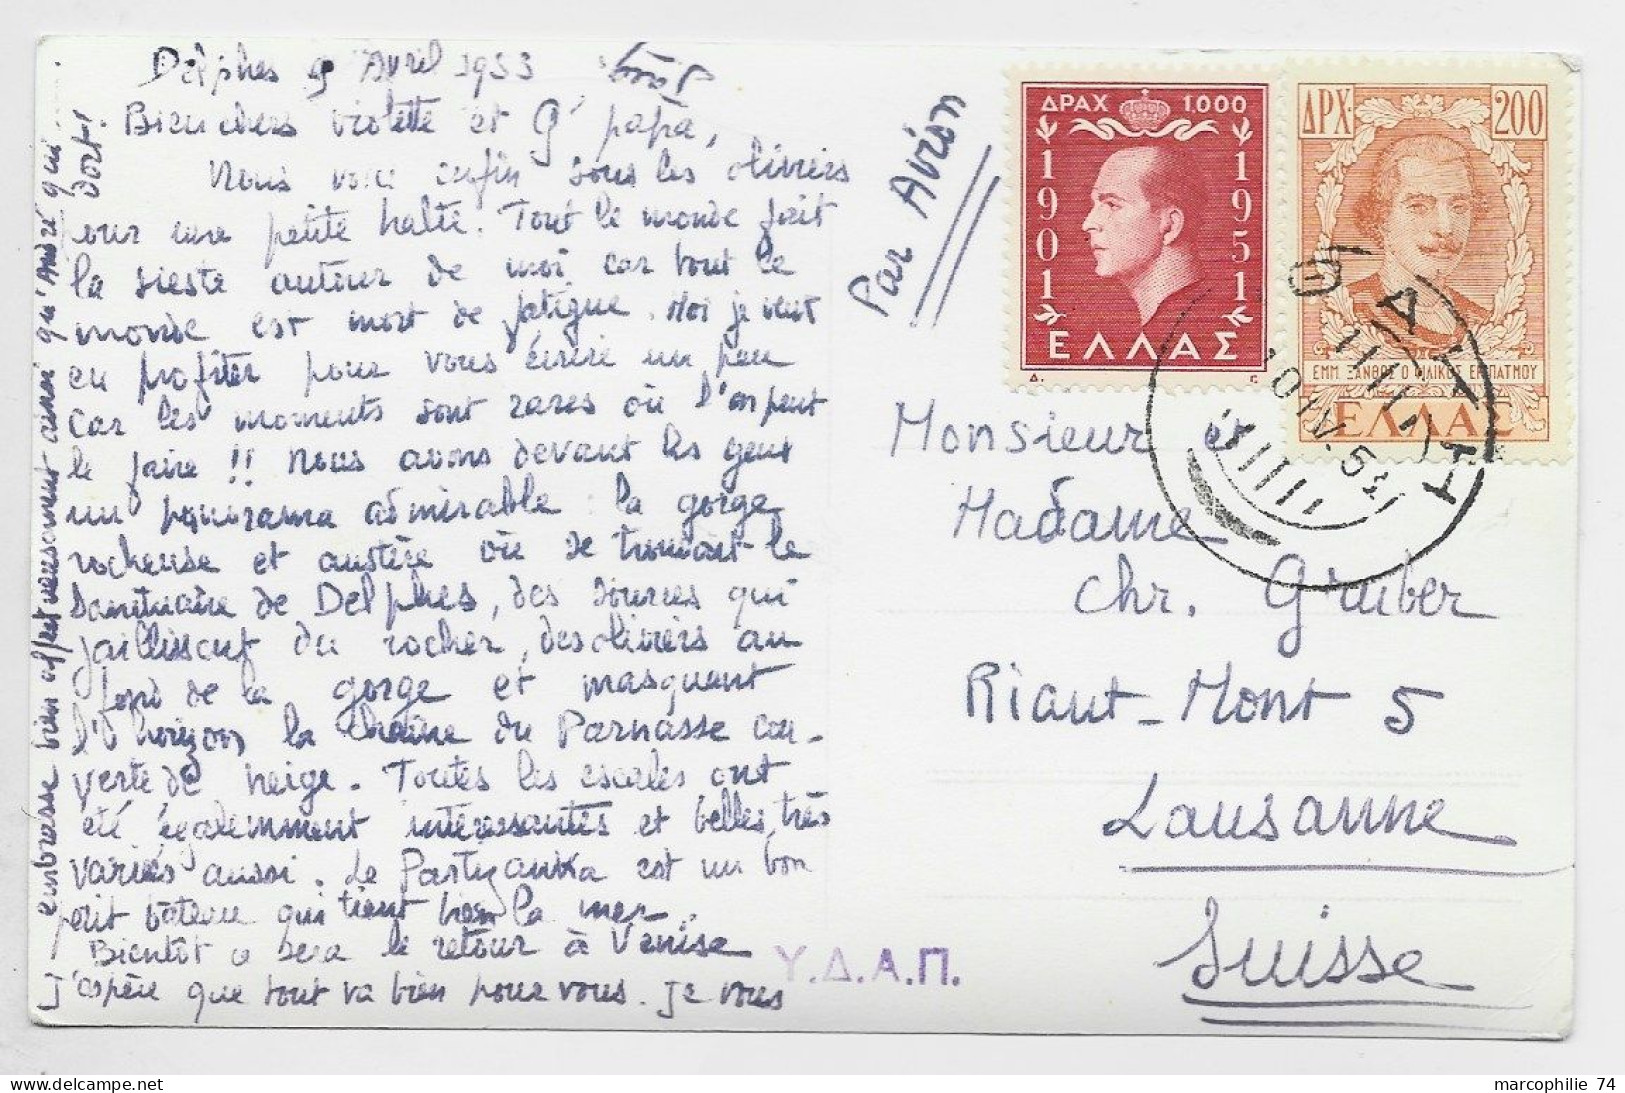 Delphes 9 Avril 1953
Bien chers Violette et Gd papa,
Nous voici enfin sous les oliviers
pour une petite halte. Tout le monde fait
la sieste autour de moi car tout le
monde est mort de fatigue. Moi je veux
en profiter pour vous écrire un peu
car les moments sont rares où l'on peut
le faire !! Nous avons devant les yeux
un panorama admirable : la gorge
rocheuse et austère où se trouvait le
Sanctuaire de Delphes, des sources qui
jaillissent du rocher, des oliviers au
fond de la gorge et masquant
l'horizon la chaîne du Parnasse cou-
verte de neige. Toutes les escales ont
été égalemment intéressantes et belles, très
variés aussi. Le Partizanka est un bon
petit bateau qui tient bien la mer.
Bientôt ce sera le retour à Venise
J'espère que tout va bien pour vous. Je vous
embrasse bien affectueusement ainsi qu'André qui
dort!
Par Avion
ΔΡΑΧ 1.000
1901 1951
ΕΛΛΑΣ
ΔΡΧ. 200
ΕΜΜ. ΞΑΝΘΟΣ Ο ΦΙΛΙΚΟΣ ΕΚ ΠΑΤΜΟΥ
ΕΛΛΑΣ
10.IV.53
Monsieur et
Madame
Chr. Gruber
Riant-Mont 5
Lausanne
Suisse
Υ.Δ.Α.Π.
marcophilie 74